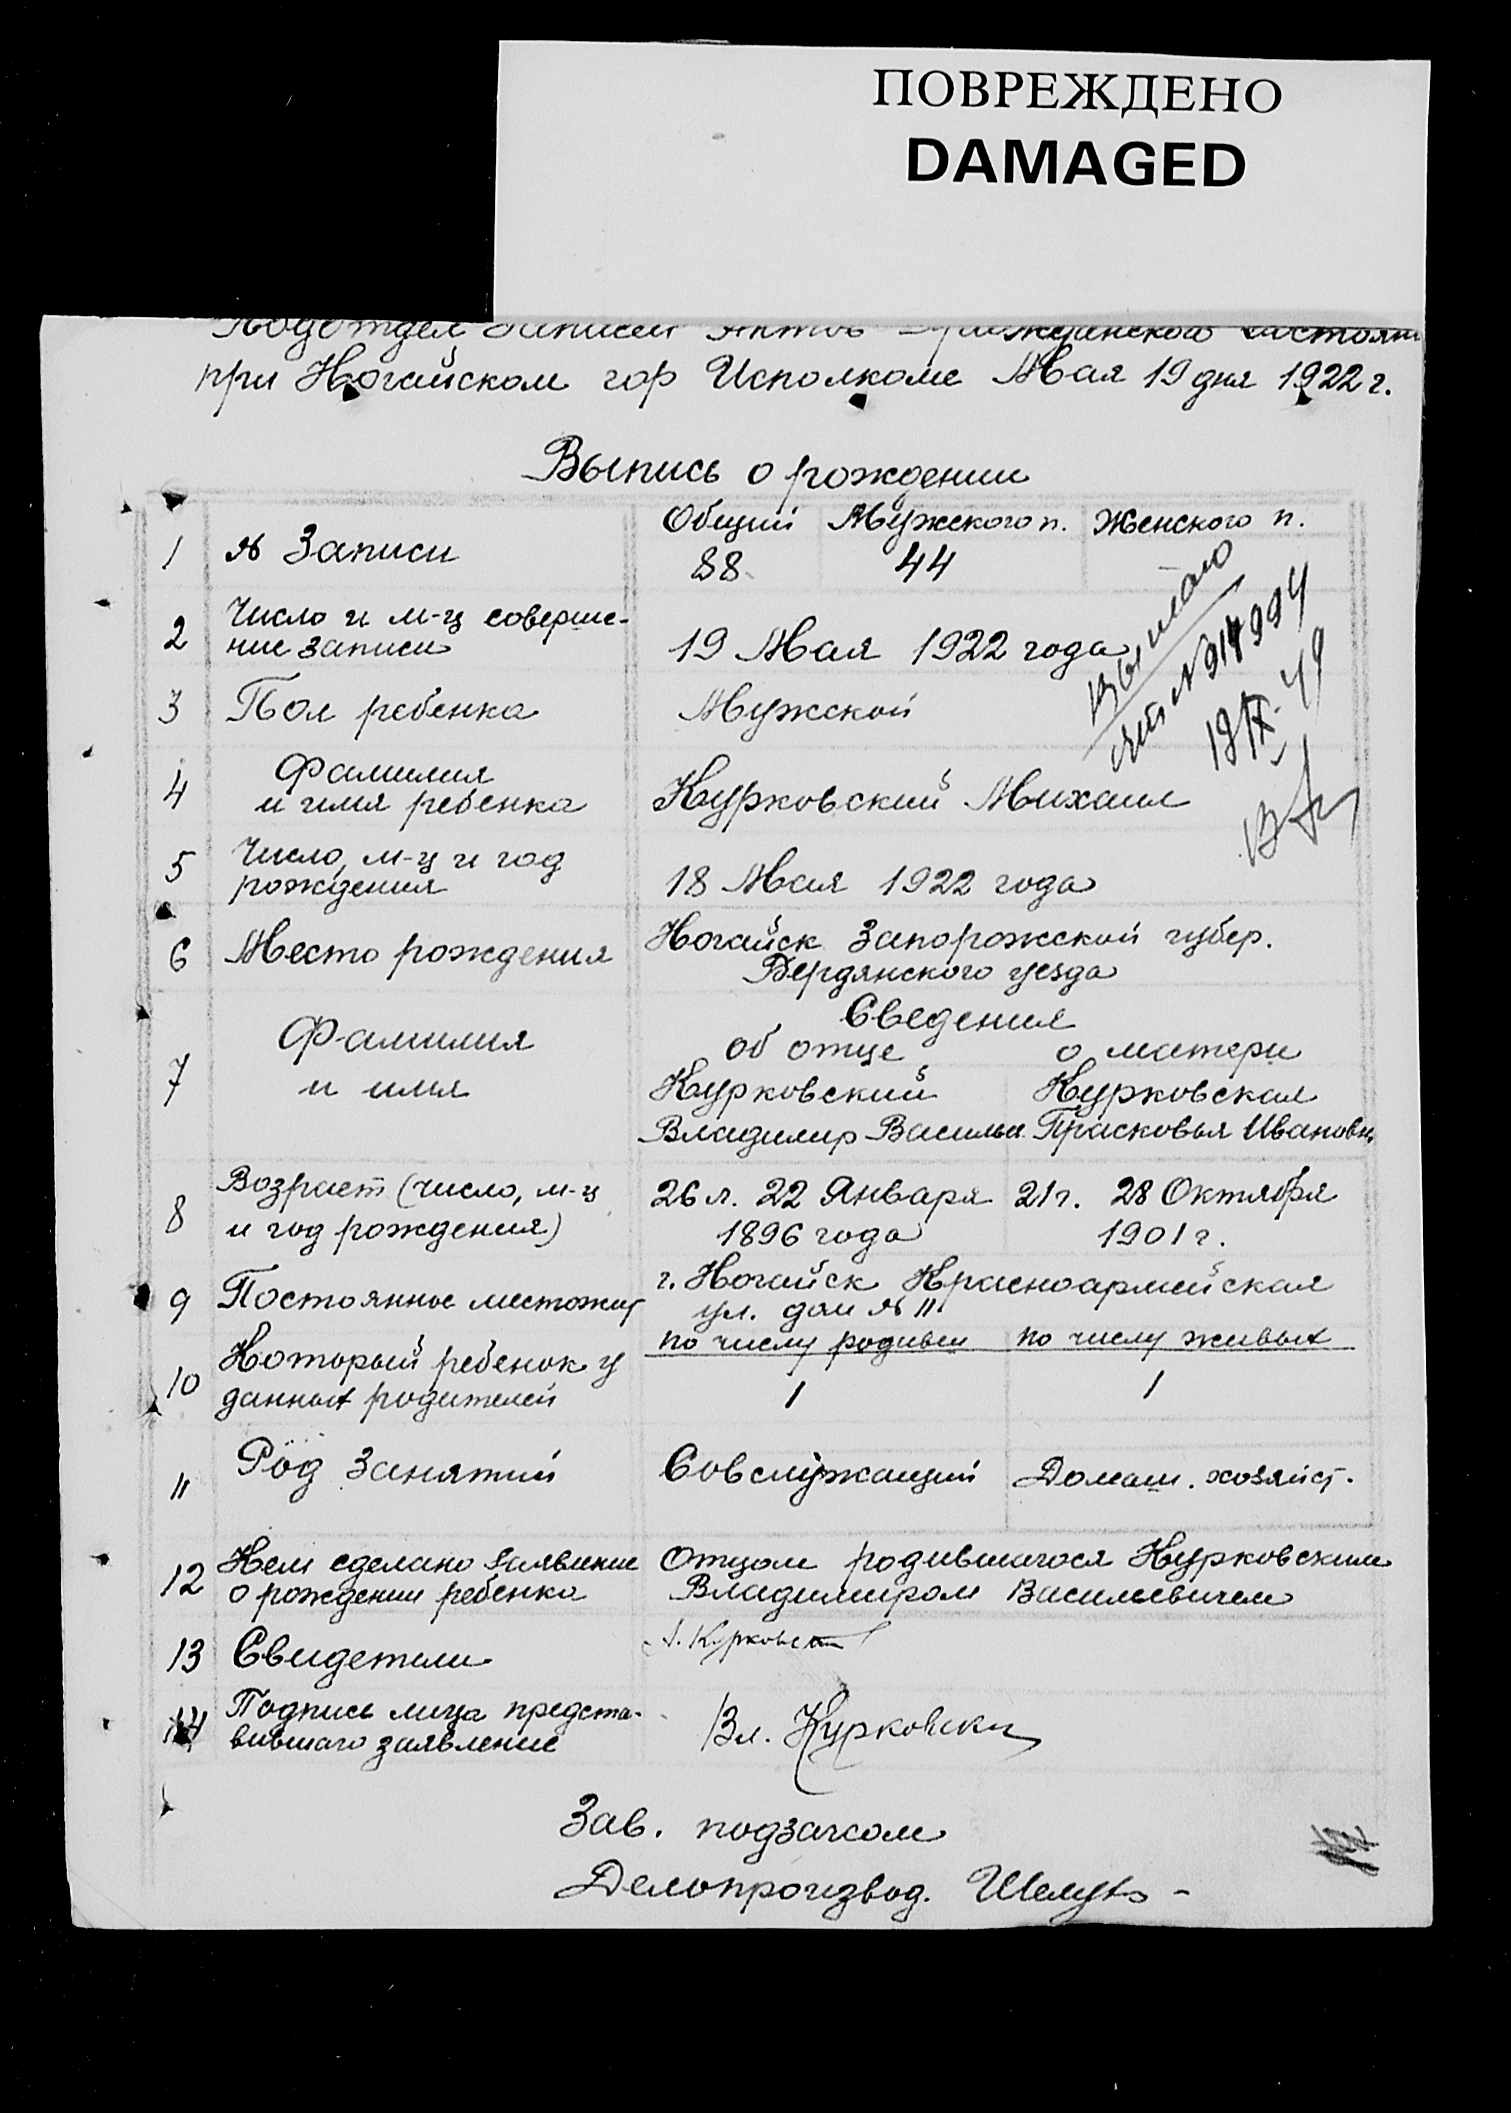 ПОВРЕЖДЕНО
DAMAGED
Подотдел Записи Актов Гражданского Состоян
при Ногайском гор Исполкоме Мая 19 дня 1922 г.
Выпись о рождении
1 № Записи Общий Мужского п. Женского п.
88 44
2 Число и м-ц соверше-
ние записи 19 Мая 1922 года
3 Пол ребенка Мужской
4 Фамилия
и имя ребенка Курковский Михаил
5 Число, м-ц и год
рождения 18 Мая 1922 года
6 Место рождения Ногайск Запорожской губер.
Бердянского уезда
7 Фамилия
и имя Сведения
об отце о матери
Курковский Курковская
Владимир Василье. Прасковья Ивановн
8 Возраст (число, м-ц
и год рождения) 26 л. 22 Января 21 г. 28 Октября
1896 года 1901 г.
9 Постоянное местожит г. Ногайск Красноармейская
ул. дом № 11
10 Который ребенок у
данных родителей по числу родивш по числу живых
1 1
11 Род Занятий Совслужащий Домаш. хозяйст.
12 Кем сделано заявление
о рождении ребенка Отцом родившагося Курковским
Владимиром Васильевичем
13 Свидетели
14 Подпись лица предста-
вившаго заявление Вл. Курковски
Зав. подзагсом
Делопроизвод.
19 IX 49